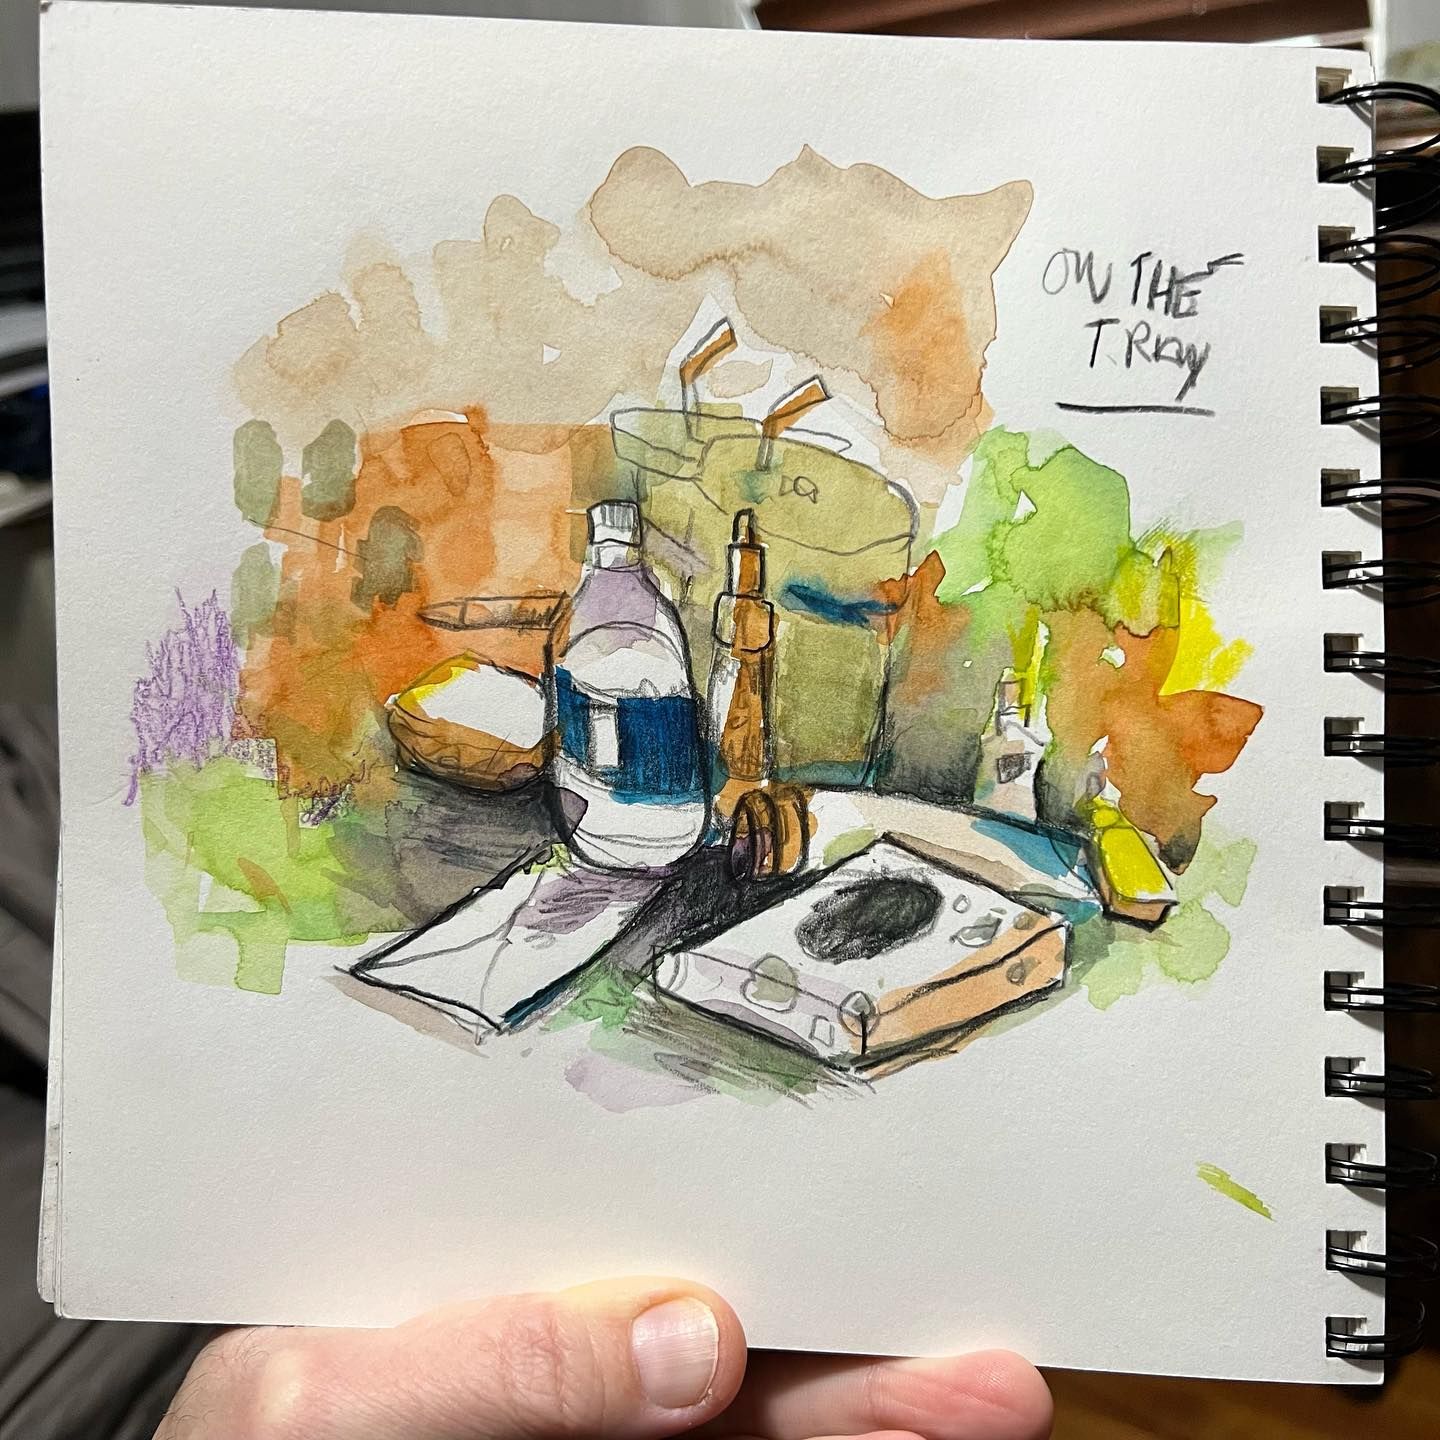 ON THE
TRAY